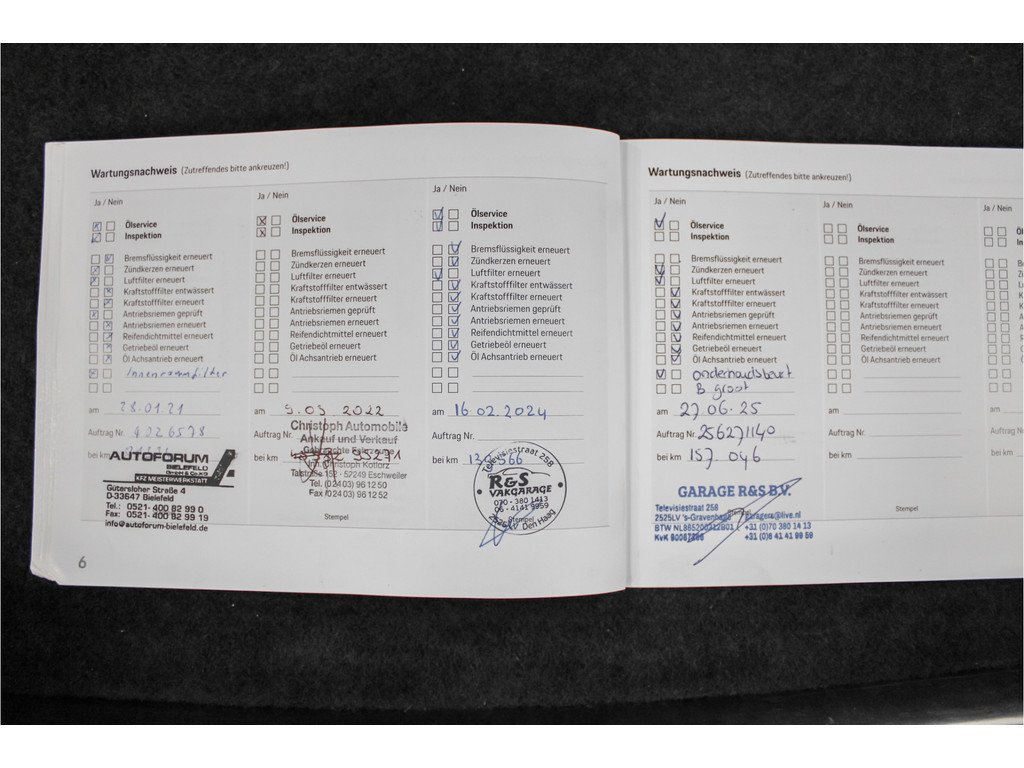 Wartungsnachweis (Zutreffendes bitte ankreuzen!)
Ja / Nein
Ölservice
Inspektion
Bremsflüssigkeit erneuert
Zündkerzen erneuert
Luftfilter erneuert
Kraftstofffilter entwässert
Kraftstofffilter erneuert
Antriebsriemen geprüft
Antriebsriemen erneuert
Reifendichtmittel erneuert
Getriebeöl erneuert
Öl Achsantrieb erneuert
Innenraumfilter
am 28.01.21
Auftrag Nr. 4026578
bei km
AUTOFORUM
BIELEFELD
GmbH & Co.KG
KFZ MEISTERWERKSTATT
Gütersloher Straße 4
D-33647 Bielefeld
Tel.: 0521- 400 82 99 0
Fax: 0521- 400 82 99 19
info@autoforum-bielefeld.de
6
Ja / Nein
Ölservice
Inspektion
Bremsflüssigkeit erneuert
Zündkerzen erneuert
Luftfilter erneuert
Kraftstofffilter entwässert
Kraftstofffilter erneuert
Antriebsriemen geprüft
Antriebsriemen erneuert
Reifendichtmittel erneuert
Getriebeöl erneuert
Öl Achsantrieb erneuert
am 9.03 2022
Auftrag Nr.
bei km
Christoph Automobile
Ankauf und Verkauf
Gebrauchte Fahrzeuge
Inh. Christoph Kotlorz
Talstraße 152 - 52249 Eschweiler
Tel. (02403) 96 12 50
Fax (02403) 96 12 52
Stempel
Ja / Nein
Ölservice
Inspektion
Bremsflüssigkeit erneuert
Zündkerzen erneuert
Luftfilter erneuert
Kraftstofffilter entwässert
Kraftstofffilter erneuert
Antriebsriemen geprüft
Antriebsriemen erneuert
Reifendichtmittel erneuert
Getriebeöl erneuert
Öl Achsantrieb erneuert
am 16.02.2024
Auftrag Nr.
bei km
Televisiestraat 258
R&S
VAKGARAGE
070 - 380 1413
06 - 4141 9959
Stempel
2525LV Den Haag
Wartungsnachweis (Zutreffendes bitte ankreuzen!)
Ja / Nein
Ölservice
Inspektion
Bremsflüssigkeit erneuert
Zündkerzen erneuert
Luftfilter erneuert
Kraftstofffilter entwässert
Kraftstofffilter erneuert
Antriebsriemen geprüft
Antriebsriemen erneuert
Reifendichtmittel erneuert
Getriebeöl erneuert
Öl Achsantrieb erneuert
onderhoudsbeurt
B groot
am 27.06.25
Auftrag Nr. 256271140
bei km 157.046
GARAGE R&S B.V.
Stempel
Televisiestraat 258
2525LV 's-Gravenhage
garagers@live.nl
+31 (0)70 380 14 13
+31 (0)6 41 41 99 59
Ja / Nein
Ölservice
Inspektion
Bremsflüssigkeit erneuert
Zündkerzen erneuert
Luftfilter erneuert
Kraftstofffilter entwässert
Kraftstofffilter erneuert
Antriebsriemen geprüft
Antriebsriemen erneuert
Reifendichtmittel erneuert
Getriebeöl erneuert
Öl Achsantrieb erneuert
am
Auftrag Nr.
bei km
Stempel
Ja / Nein
am
Auftrag Nr.
bei km